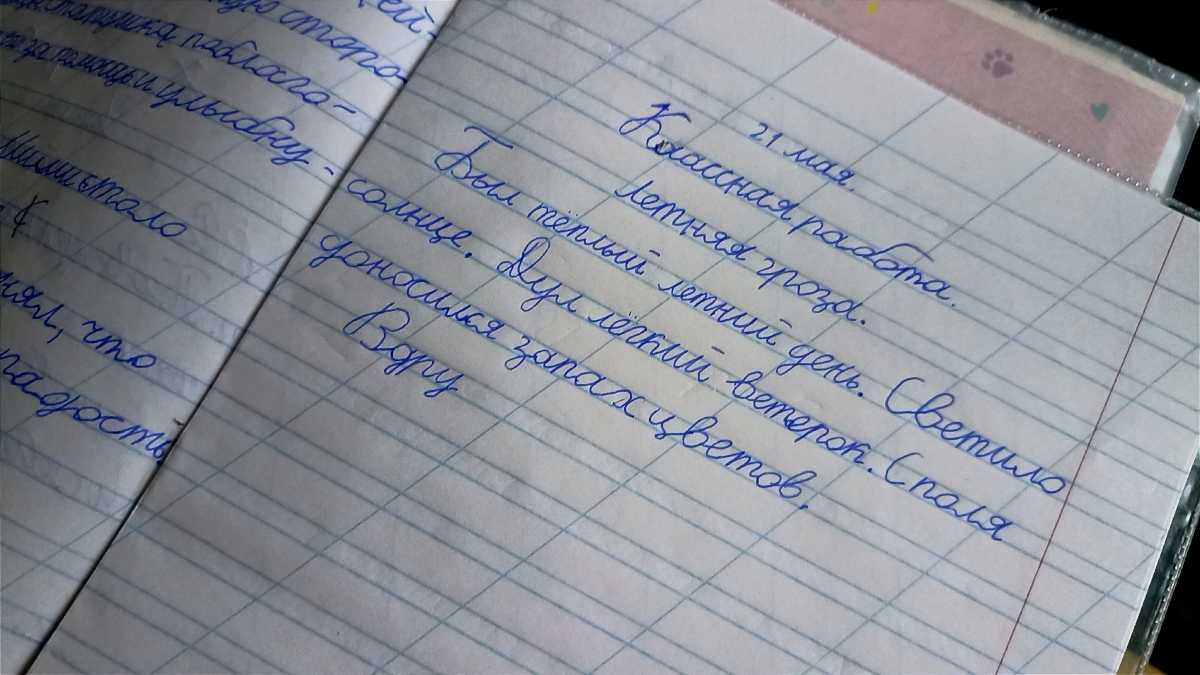 сторо-
старушка поблаго-
за помощь и улыбну-
стало
что
радость
21 мая.
Классная работа.
Летняя гроза.
Был тёплый летний день. Светило
солнце. Дул лёгкий ветерок. С поля
доносился запах цветов.
Вдру